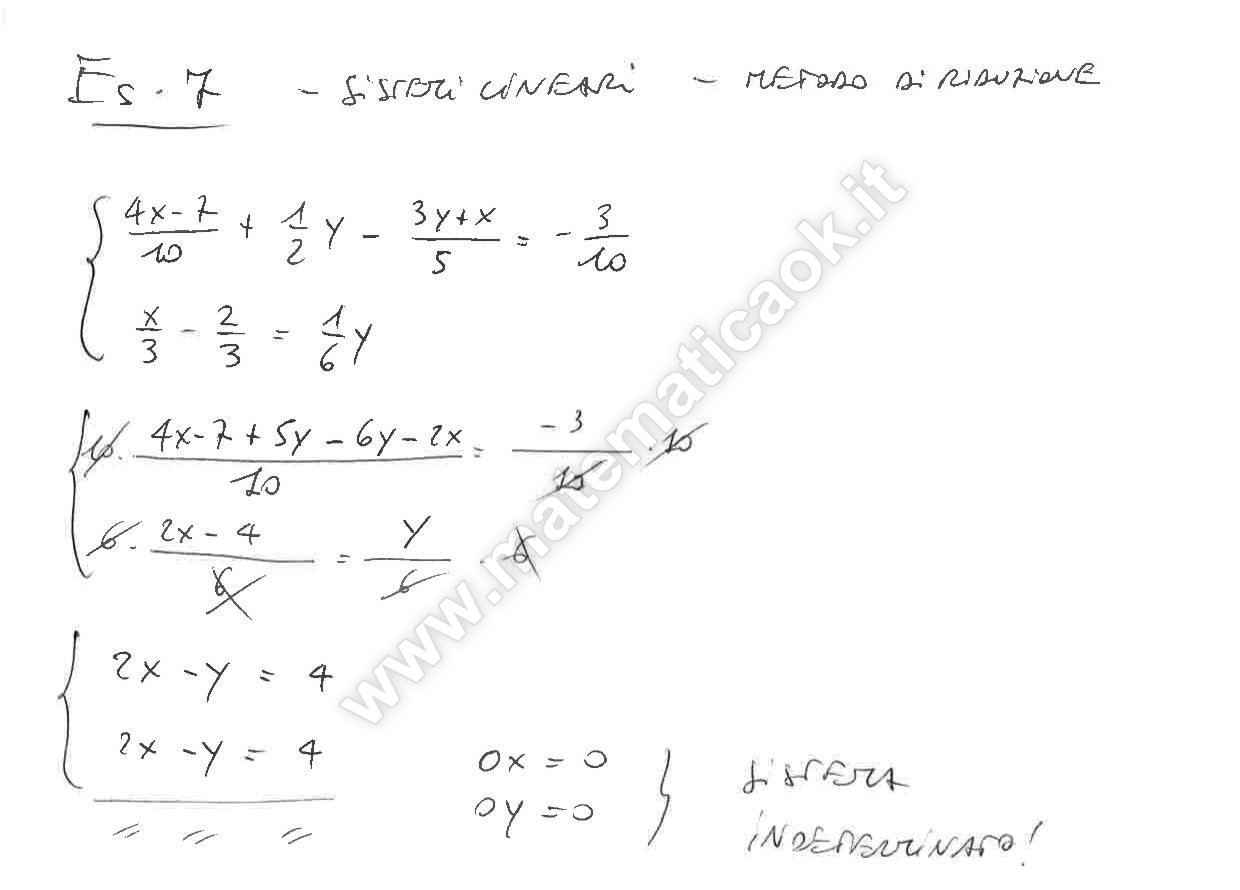 Es. 7 - SISTEMI LINEARI - METODO DI RIDUZIONE
4x-7/10 + 1/2 y - 3y+x/5 = - 3/10
x/3 - 2/3 = 1/6 y
10 · 4x-7+5y-6y-2x/10 = -3/10 · 10
6 · 2x-4/6 = y/6 · 6
2x - y = 4
2x - y = 4
= = =
0x = 0
0y = 0
} SISTEMA
INDETERMINATO!
www.matematicaok.it